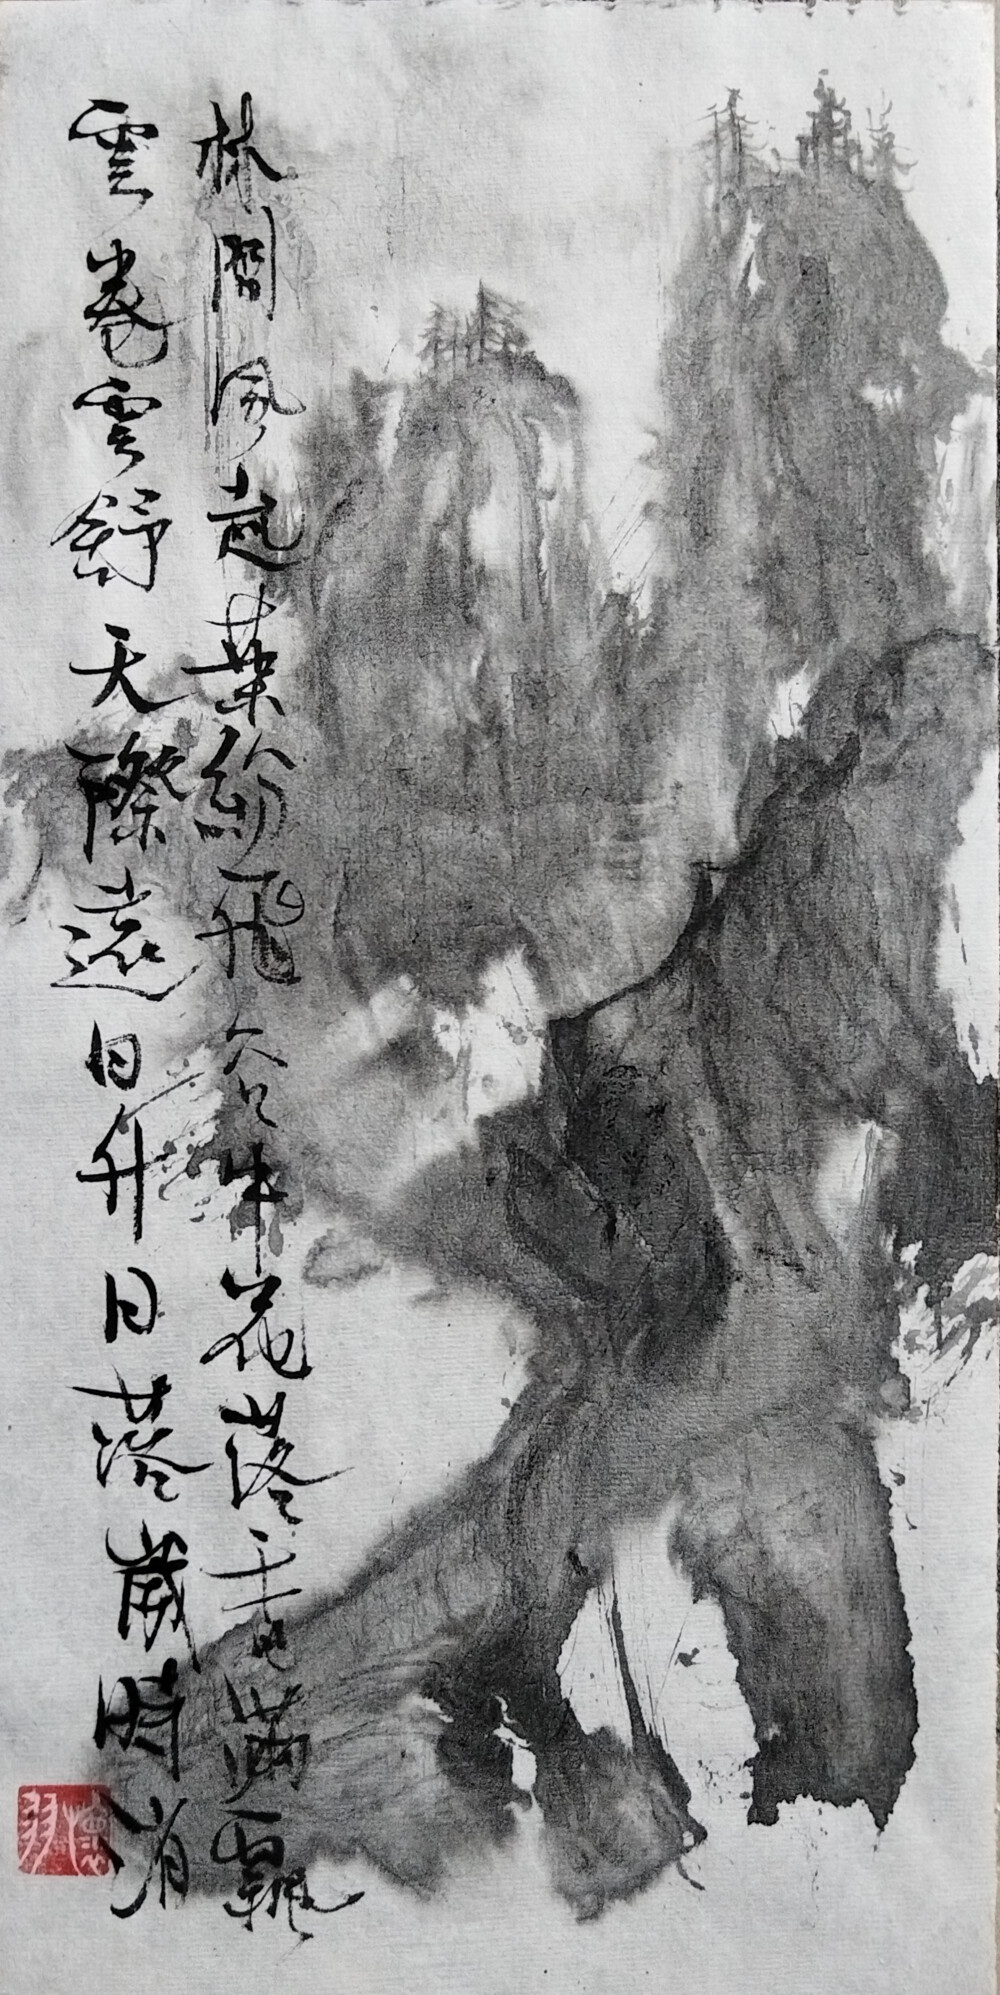 林間風起葉紛飛谷中花落香滿飄
雲卷雲舒天際遠日升日落歲時消